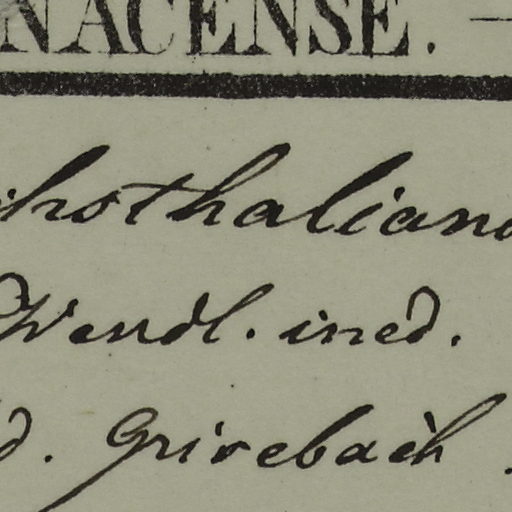 NACENSE. —
ihothaliana
Wendl. ined.
d. Grisebach.